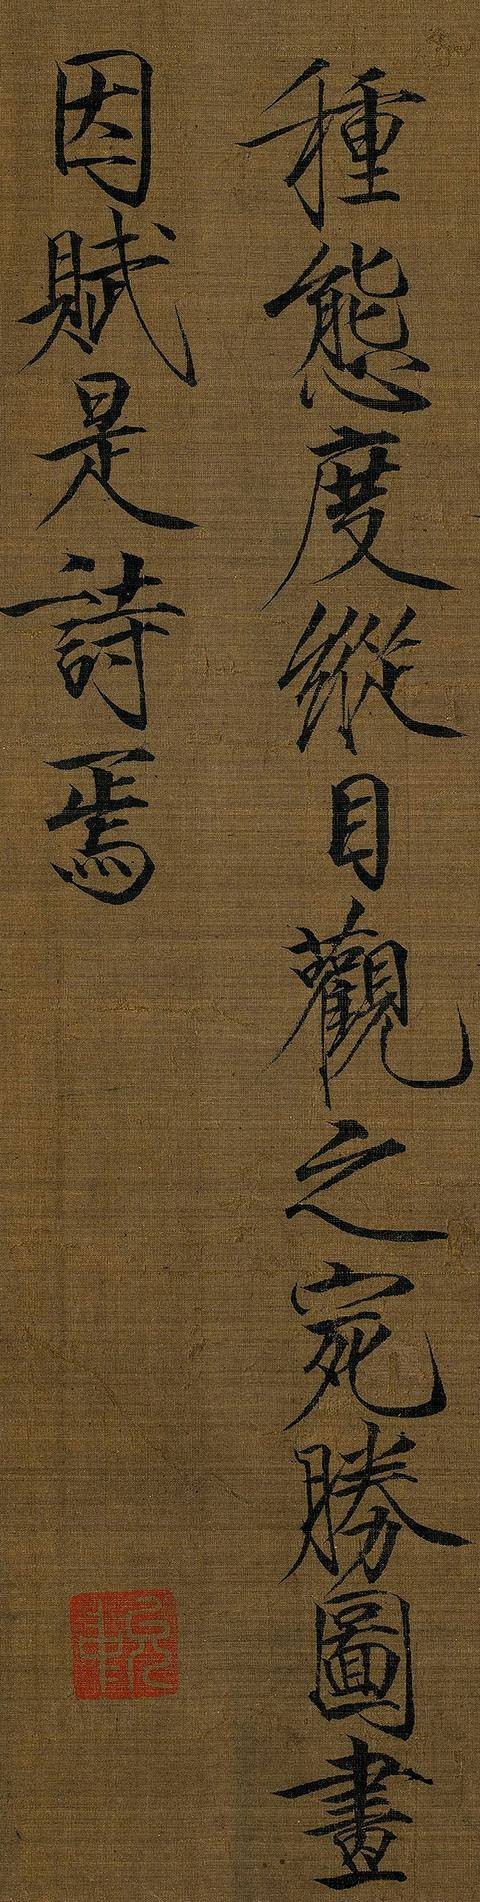 種態度縱目觀之宛勝圖畫
因賦是詩焉